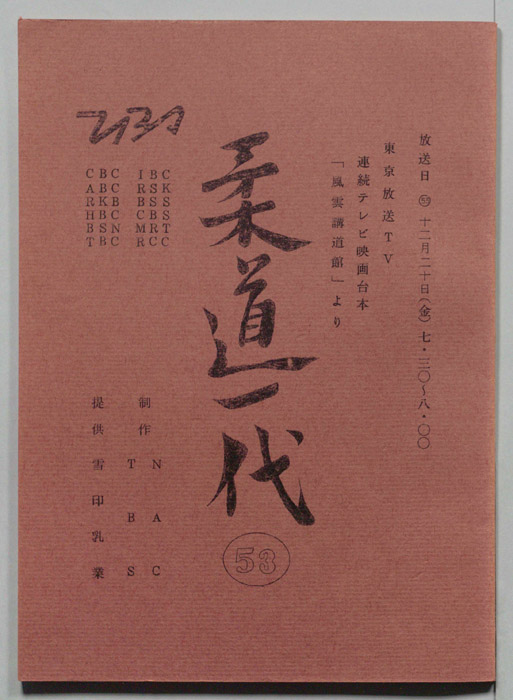 放送日 ㊼ 十二月二十日(金)七・三〇〜八・〇〇
東京放送TV
連続テレビ映画台本
「風雲講道館」より
柔道一代
53
TBS
CBC IBC
ABC RSK
RKB BSS
HBC CBS
BSN MRT
TBC RCC
制作 NAC
TBS
提供 雪印乳業